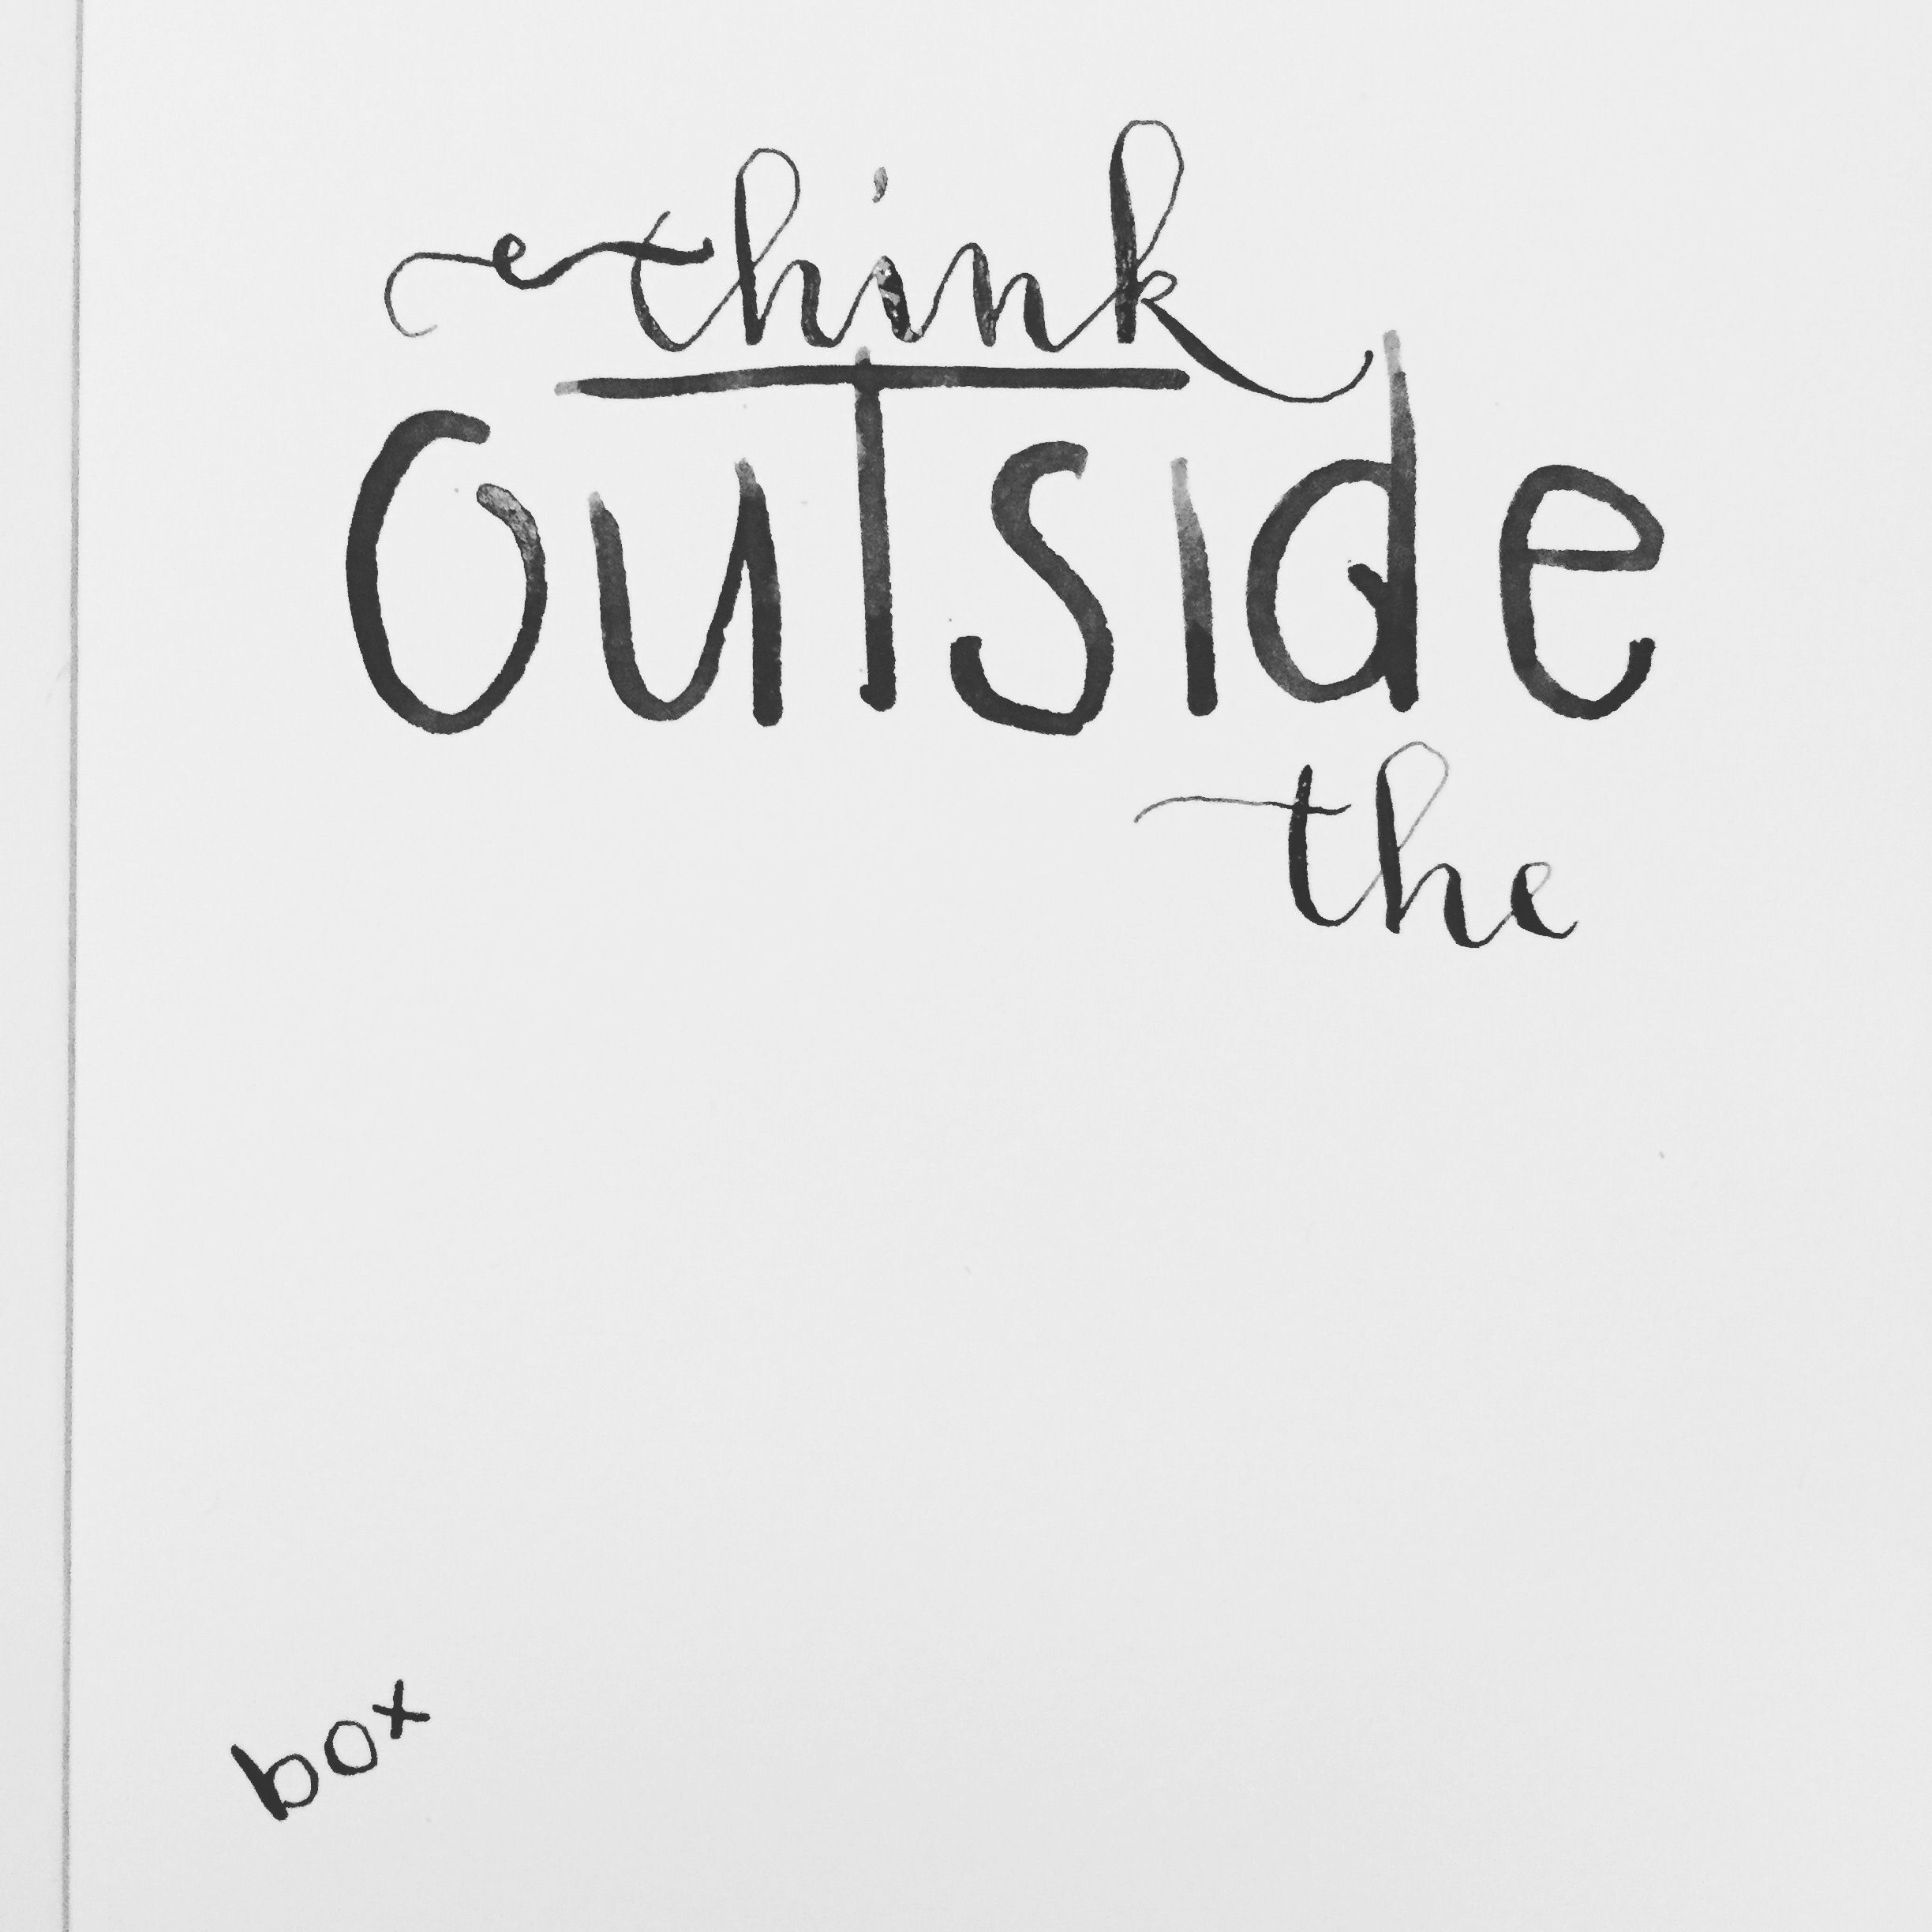 think
ouTside
the
box